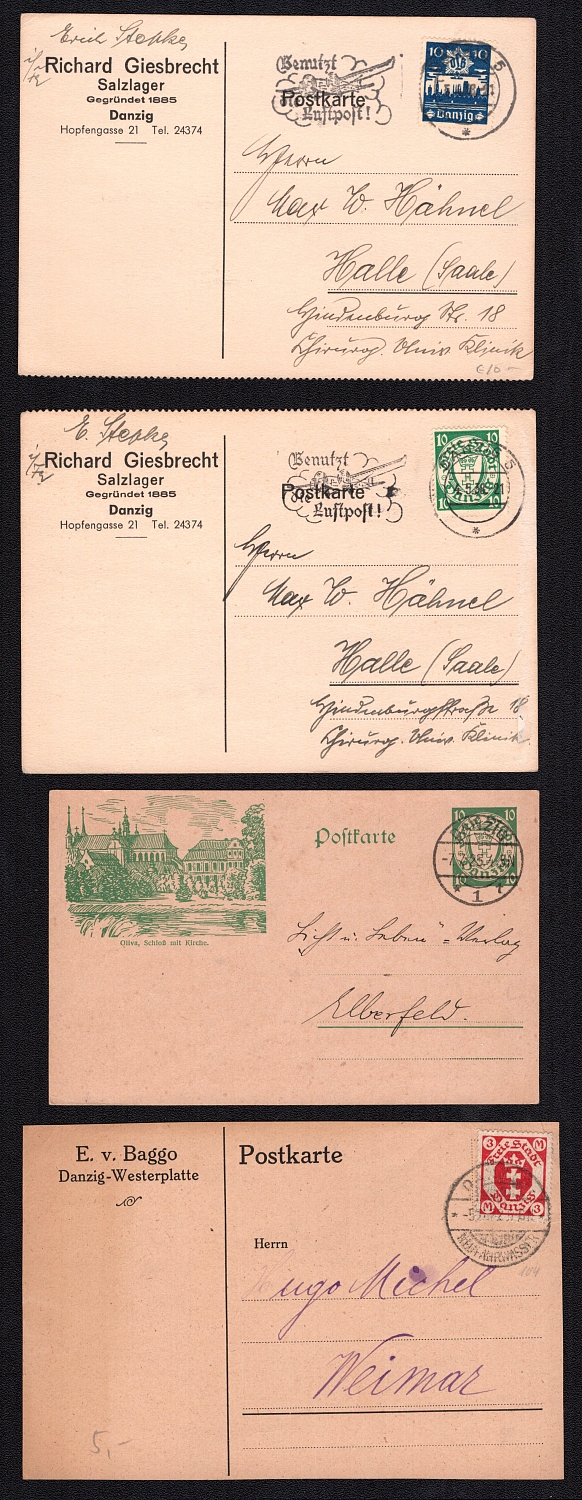 Erich Stepke
Richard Giesbrecht
Salzlager
Gegründet 1885
Danzig
Hopfengasse 21 Tel. 24374
Benutzt
Postkarte
Luftpost!
10 10
Danzig
5
Herrn
Max W. Hähnel
Halle (Saale)
Hindenburg Str. 18
Chirurg. Univ. Klinik
E. Stepke
Richard Giesbrecht
Salzlager
Gegründet 1885
Danzig
Hopfengasse 21 Tel. 24374
Benutzt
Postkarte
Luftpost!
10 10
10 10
5
Herrn
Max W. Hähnel
Halle (Saale)
Hindenburgstraße 18
Chirurg. Univ. Klinik
Oliva, Schloß mit Kirche.
Postkarte
10 10
Danzig
1
Licht u. Leben"=Verlag
Elberfeld.
E. v. Baggo
Danzig-Westerplatte
Postkarte
3 M
Freie Stadt
Danzig
M 3
NEUFAHRWASSER
Herrn
Hugo Michel
Weimar
5,-